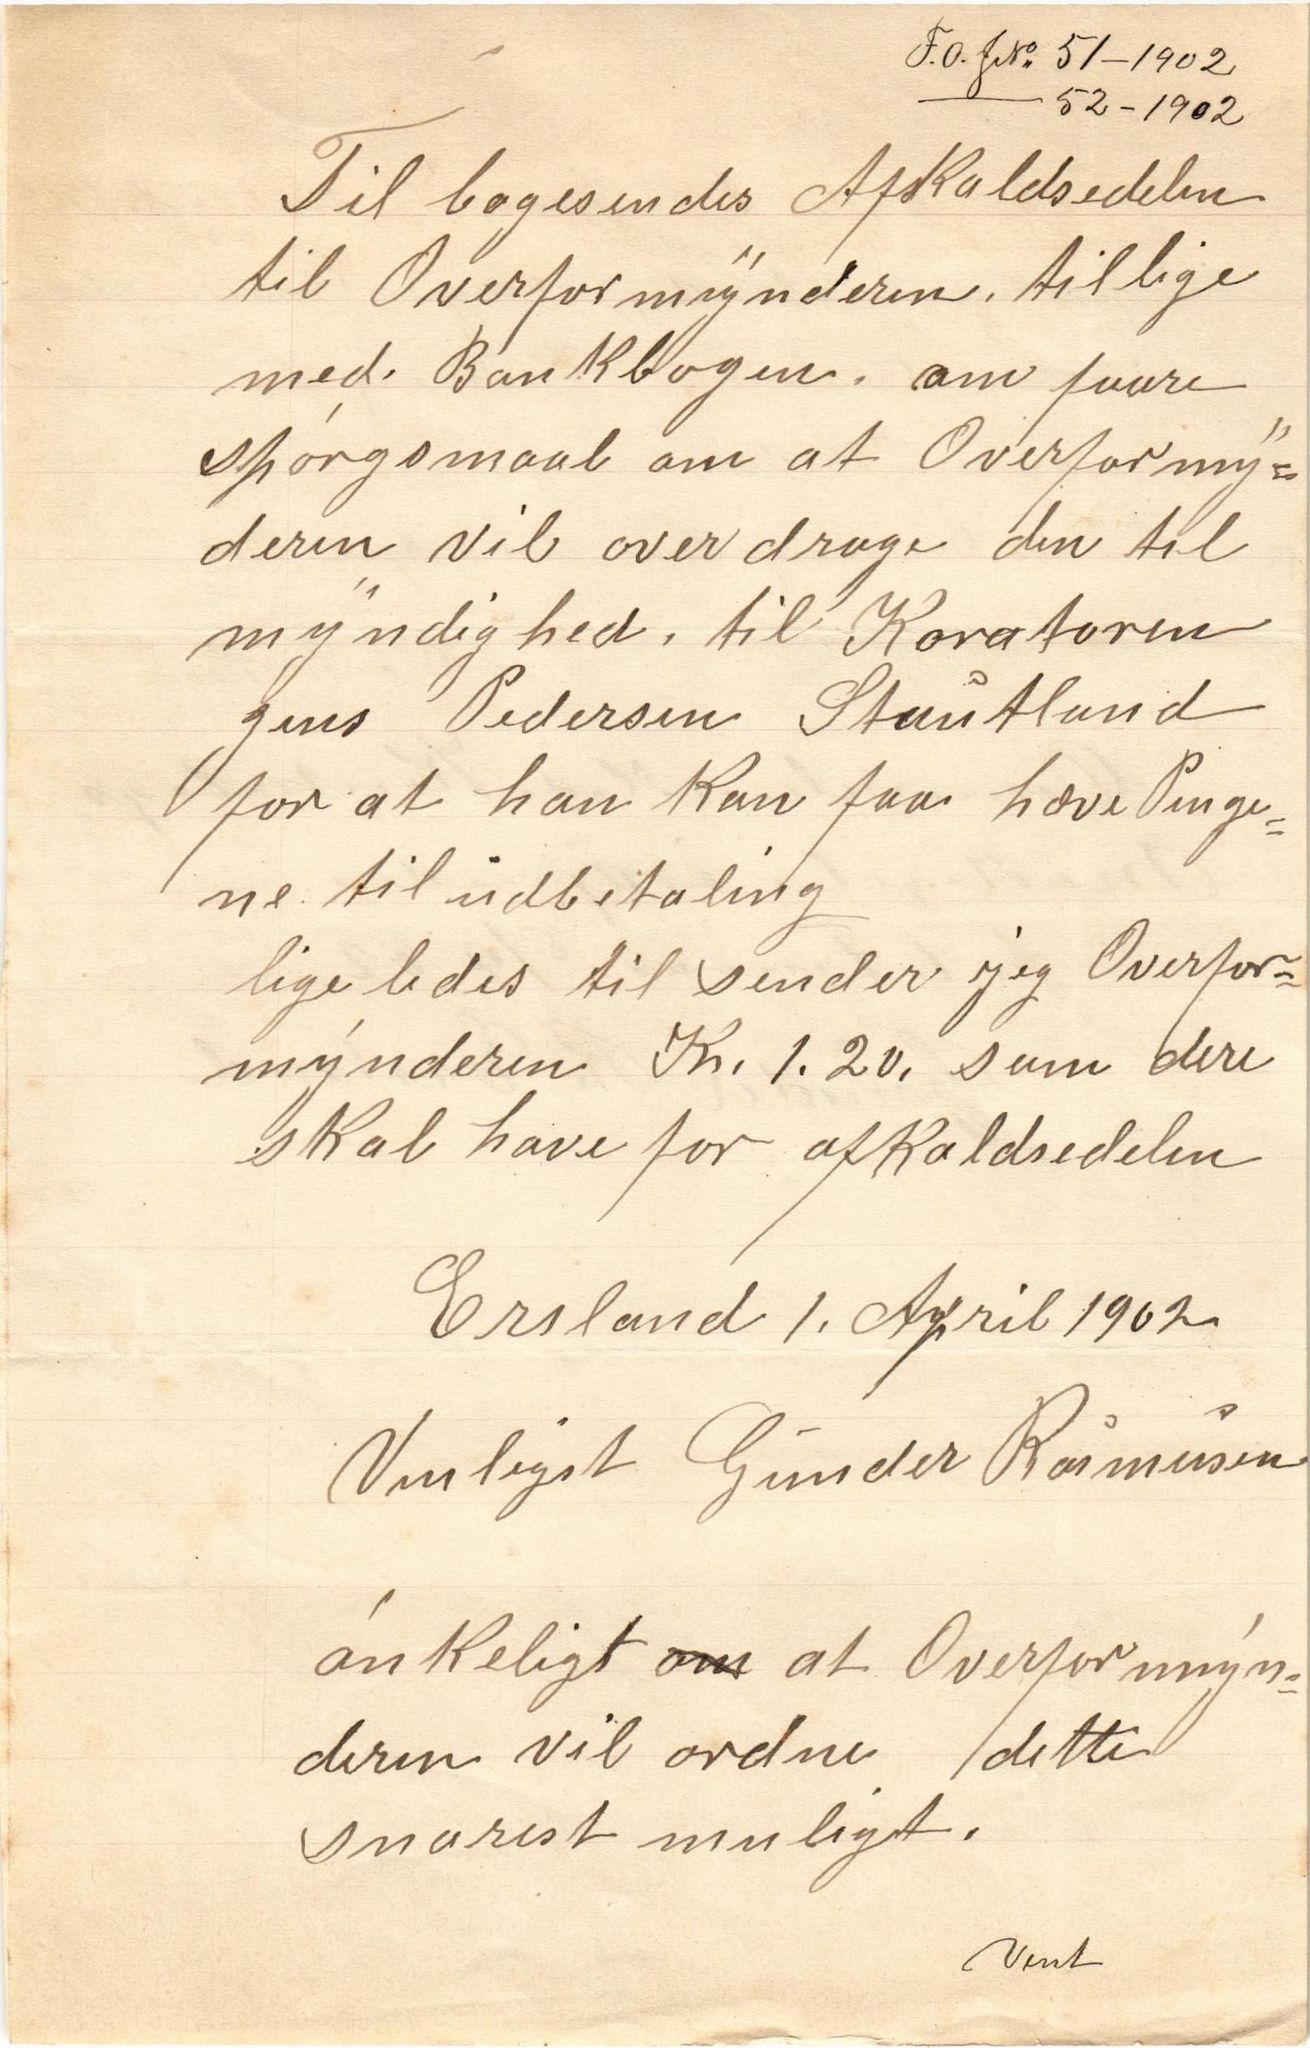 F.O. J.No. 51-1902
— 52-1902
Til bagesendes Afkaldsedelen
til Overformÿnderen. tillige
med. Bankbogen. om faare
spórgsmaal om at Overformÿ=
deren vil over drage den til
mÿndighed. til Koratoren
Jens Pedersen Stautland
for at han kan faa hæve Penge=
ne til udbetaling
lige ledes til sender jeg Overfor=
mýnderen Kr. 1.20. som dere
skal have for afkaldsedelen
Ersland 1. April 1902
Venligst Gunder Rasmusen
ónkeligt om at Overformýn=
deren vil ordne dette
snarest muligt.
Vent